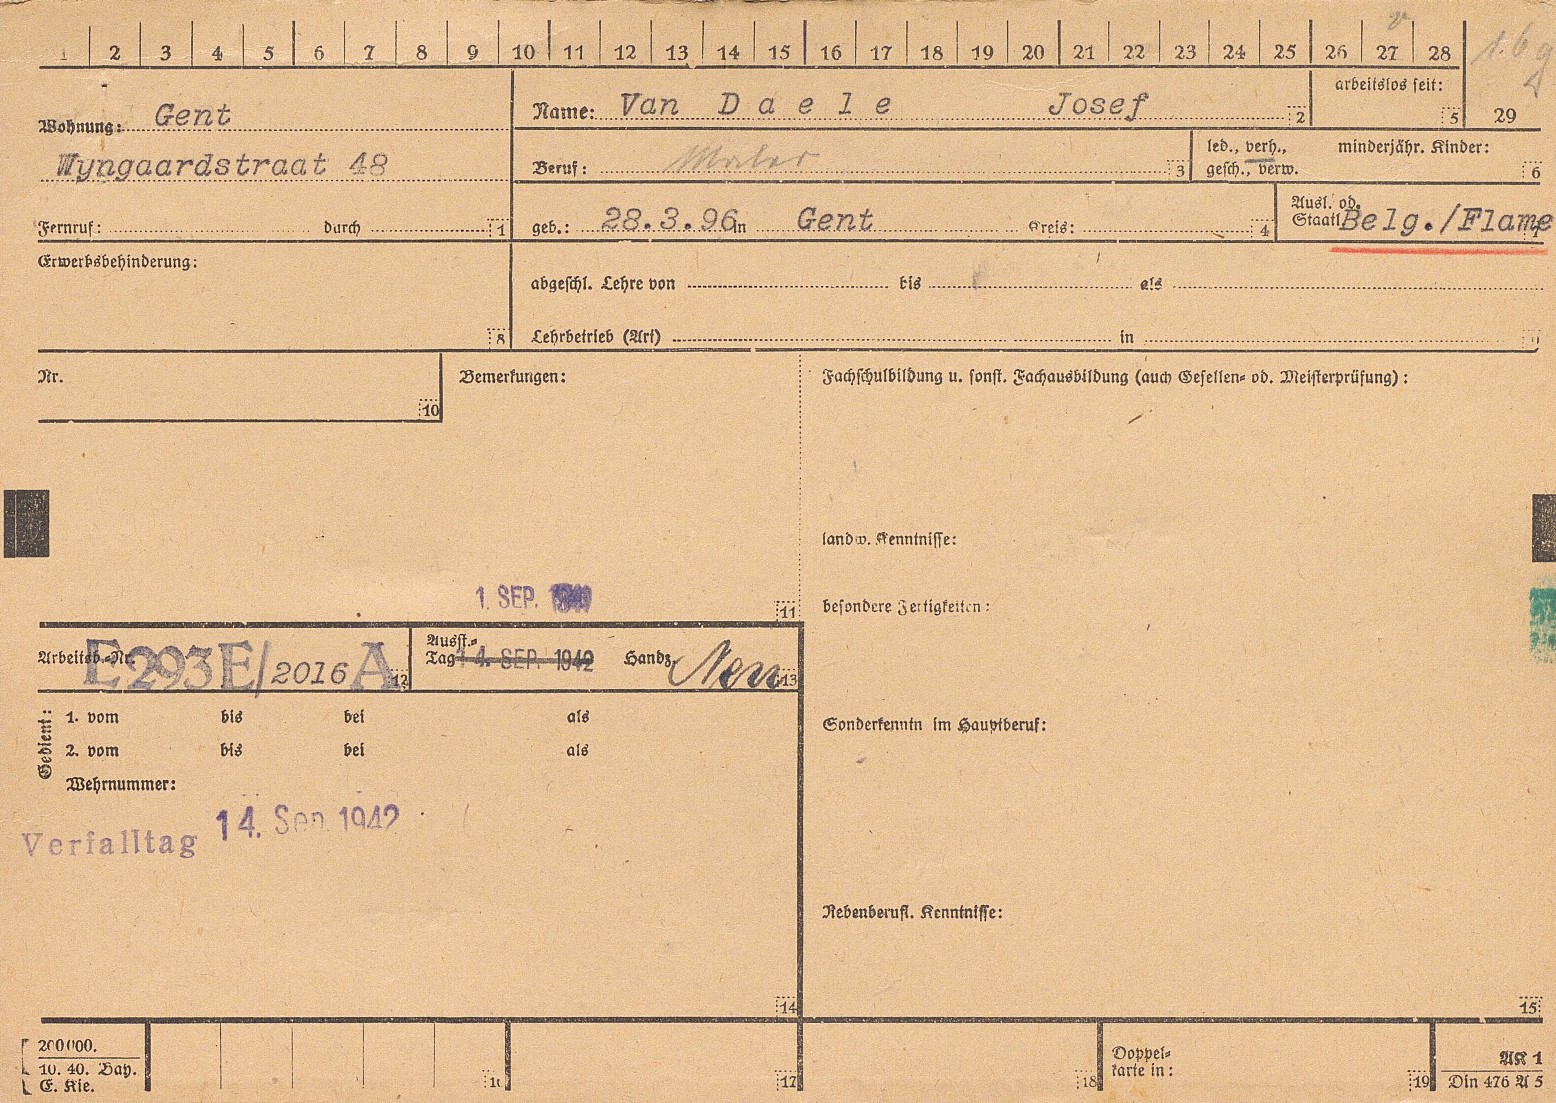 1 2 3 4 5 6 7 8 9 10 11 12 13 14 15 16 17 18 19 20 21 22 23 24 25 26 27 28
1.6g
Wohnung: Gent
Wyngaardstraat 48
Fernruf: durch 1
Name: Van Daele Josef 2
arbeitslos seit: 5
29
Beruf: Maler 3
led., verh., gesch., verw.
minderjähr. Kinder: 6
geb.: 28.3.96 in Gent Kreis: 4
Ausl. od.
Staatl. Belg./Flame 7
Erwerbsbehinderung:
8
abgeschl. Lehre von bis als
Lehrbetrieb (Art) in
Nr.
10
Bemerkungen:
1. SEP.
11
Fachschulbildung u. sonst. Fachausbildung (auch Gesellen- od. Meisterprüfung):
landw. Kenntnisse:
besondere Fertigkeiten:
Sonderkenntn im Hauptberuf:
Nebenberufl. Kenntnisse:
15
Arbeitsb.-Nr. E293E/2016 A 12
Ausst.-
Tag 14. SEP. 1942 Handz. 13
Gedient:
1. vom bis bei als
2. vom bis bei als
Wehrnummer:
Verfalltag 14. Sep. 1942
14
200000.
10. 40. Bay.
E. Kie.
16
17
18
Doppel-
karte in:
19
AK 1
Din 476 A 5